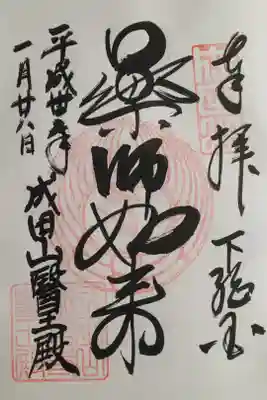 奉拝
下総国
薬師如来
成田山醫王殿
平成卅年
一月廿八日